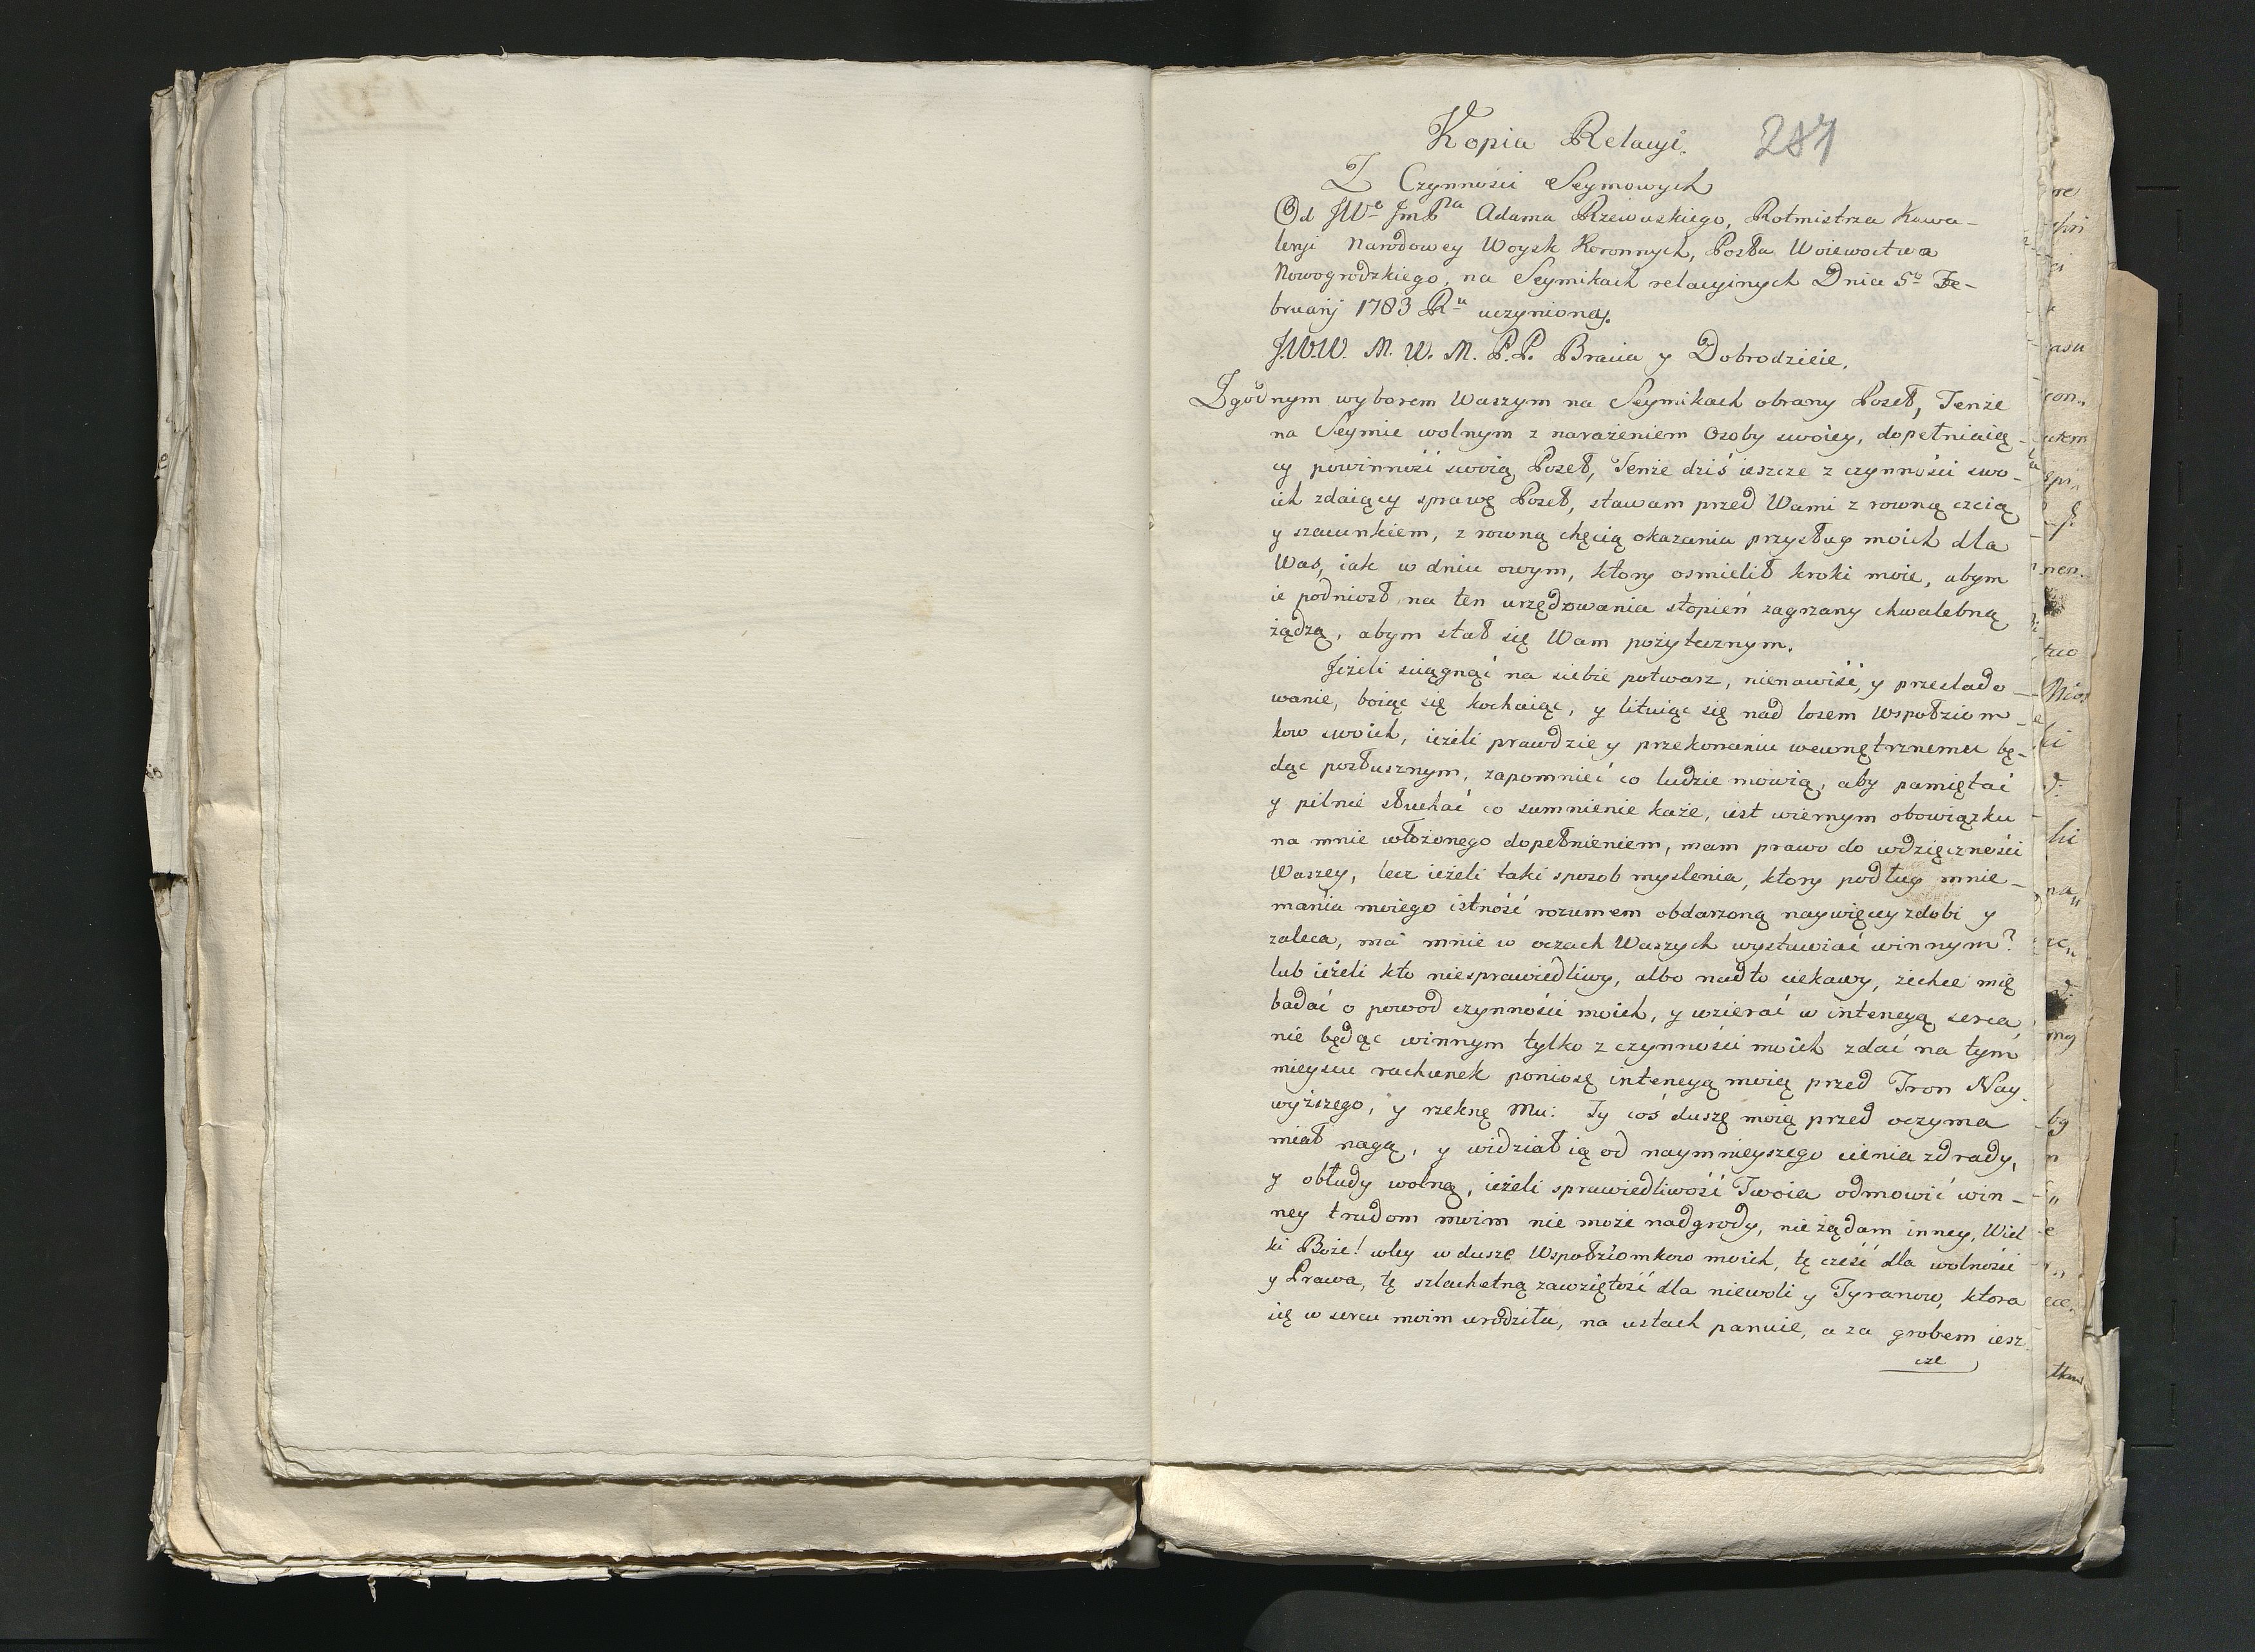 Kopia Relacyi. 287
Z Czynności Seymowych
Od JWo JmPna Adama Rzewuskiego, Rotmistrza Kawa-
leryi Narodowey Woysk Koronnych, Posła Woiewoctwa
Nowogrodzkiego, na Seymikach relacyinych Dnia 5o Fe-
bruarij 1783 Ru uczyniona.
J.W.W. M. W. M. P.P. Bracia y Dobrodzieie.
Zgodnym wyborem Waszym na Seymikach obrany Poseł, Tenże
na Seymie wolnym z narażeniem Osoby swoiey, dopełniaią-
cy powinność swoią Poseł, Tenże dziś ieszcze z czynności swo-
ich zdaiący sprawę Poseł, stawam przed Wami z rowną czcią
y szacunkiem, z rowną chęcią okazania przysług moich dla
Was, iak w dniu owym, ktory osmielił kroki moie, abym
ie podniosł na ten urzędowania stopień zagrzany chwalebną
żądzą, abym stał się Wam pożytecznym.
Jeżeli sciągnąć na siebie potwarz, nienawiść, y przeslado-
wanie, boiąc się kochaiąc, y lituiąc się nad losem Wspołziom-
kow swoich, ieżeli prawdzie y przekonaniu wewnętrznemu bę-
dąc posłusznym, zapomnieć co ludzie mówią, aby pamiętać
y pilnie słuchać co sumnienie każe, iest wiernym obowiązku
na mnie włożonego dopełnieniem, mam prawo do wdzięczności
Waszey, lecz ieżeli taki sposob myslenia, ktory podług mnie-
mania moiego istność rozumem obdarzoną naywięcey zdobi y
zaleca, ma mnie w oczach Waszych wystawiać winnym?
lub ieżeli kto niesprawiedliwy, albo nadto ciekawy, zechce mię
badać o powod czynności moich, y wzierać w intencyą serca,
nie będąc winnym tylko z czynności moich zdać na tym
mieyscu rachunek poniosę intencyą moię przed Tron Nay-
wyższego, y rzeknę Mu: Ty coś duszę moią przed oczyma
miał nagą, y widział ią od naymnieyszego cienia zdrady,
y obłudy wolną, ieżeli sprawiedliwość Twoia odmowić win-
ney trudom moim nie może nadgrody, nie żądam inney, Wiel
ki Boże! wley w dusze Wspołziomkow moich, tę cześć dla wolności
y Prawa, tę szlachetną zawziętość dla niewoli y Tyranow, ktora
się w sercu moim urodziła, na ustach panuie, a za grobem iesz
cze